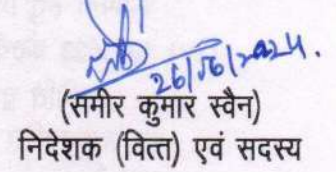 26/06/2024.
(समीर कुमार स्वैन)
निदेशक (वित्त) एवं सदस्य